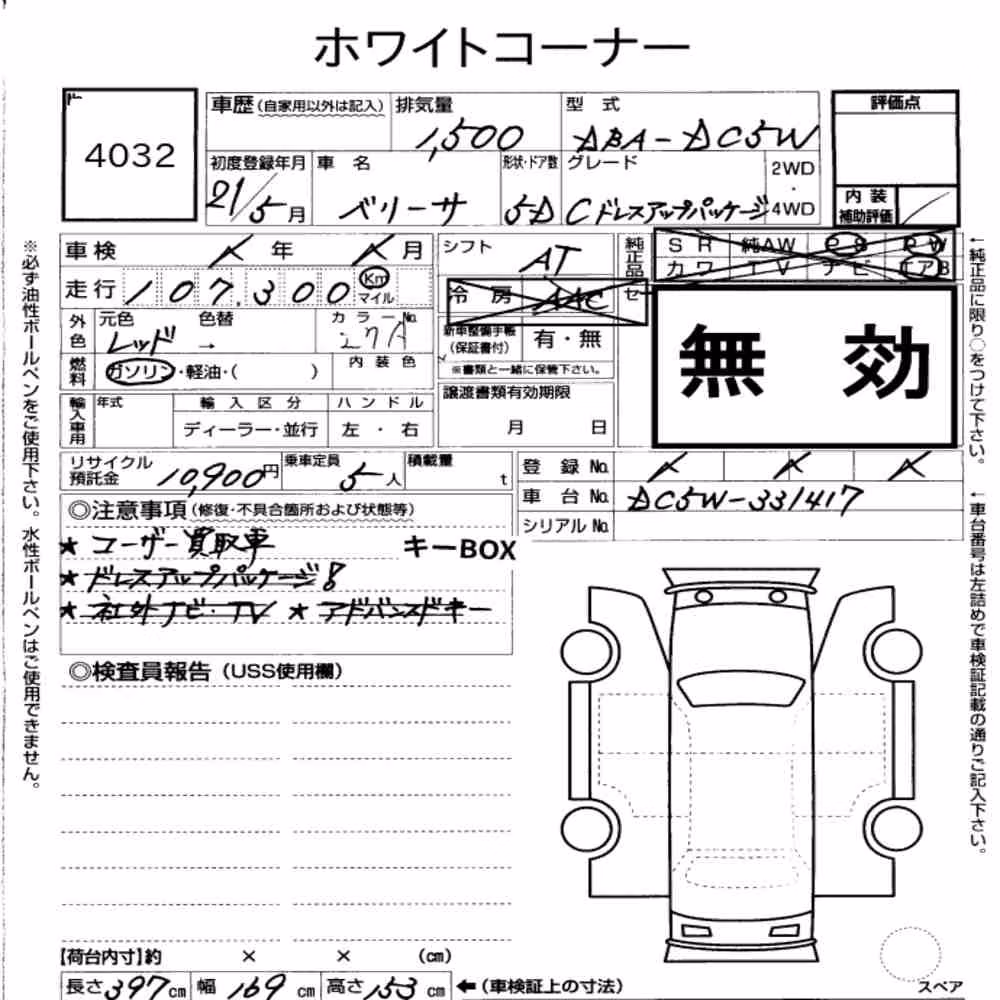 ホワイトコーナー
4032
車歴 (自家用以外は記入) 排気量 型 式 評価点
1,500 DBA-DC5W
初度登録年月 車 名 形状・ドア数 グレード 2WD
21/5月 ベリーサ 5-D Cドレスアップパッケージ ・4WD
内 装
補助評価
車検 年 月 シフト AT 純正品 SR 純AW PS PW
カワ TV ナビ エアB
走行 107,300 Km
マイル
冷房 AAC セ
外色 元色 色替 カラーNo.
レッド → 27A
新車整備手帳
(保証書付) 有・無
※書類と一緒に保管下さい。
無 効
燃料 ガソリン・軽油・( ) 内装色
譲渡書類有効期限
月 日
輸入車用 年式 輸入区分 ハンドル
ディーラー・並行 左・右
リサイクル
預託金 10,900円 乗車定員 5人 積載量 t
登録No.
車台No. DC5W-331417
シリアルNo.
◎注意事項 (修復・不具合箇所および状態等)
★ユーザー買取車 キーBOX
★ドレスアップパッケージ!
★社外ナビ・TV ★アドバンスドキー
◎検査員報告 (USS使用欄)
【荷台内寸】約 × × (cm)
長さ397cm 幅169cm 高さ153cm ←(車検証上の寸法)
スペア
※必ず油性ボールペンをご使用下さい。水性ボールペンはご使用できません。
←純正品に限り○をつけて下さい。
←車台番号は左詰めで車検証記載の通りご記入下さい。